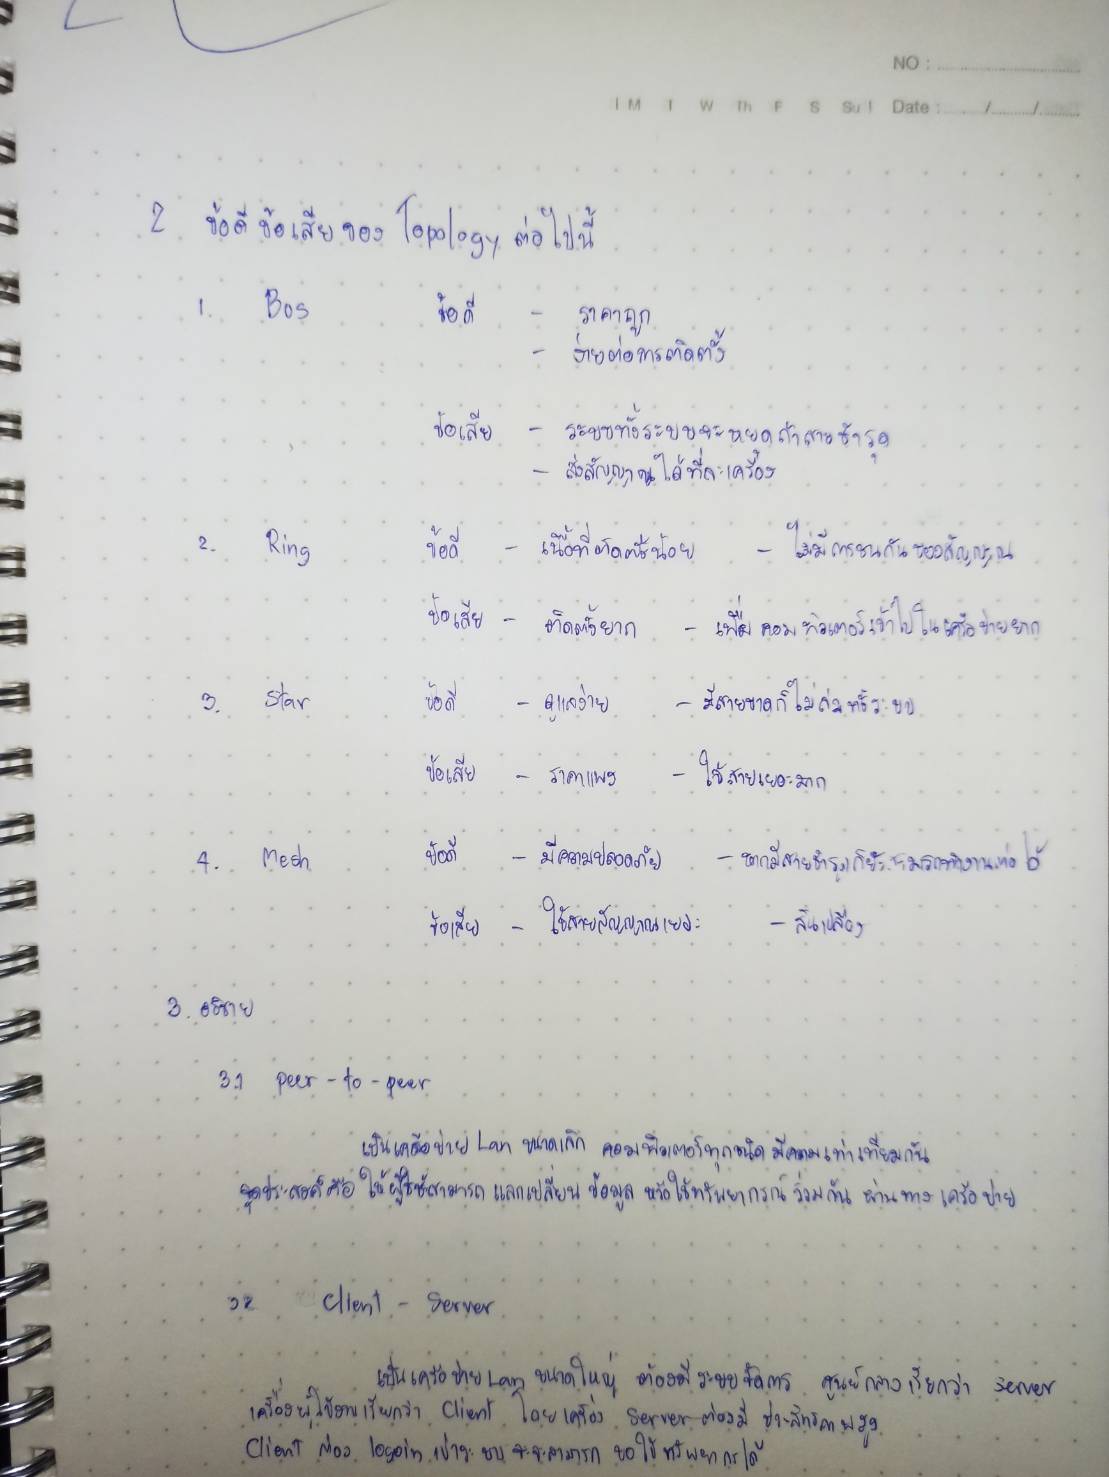 NO :
M T W Th F S Su Date : / /
2 ข้อดี ข้อเสีย ของ Topology ต่อไปนี้
1. Bos ข้อดี - ราคาถูก
- ง่ายต่อการติดตั้ง
ข้อเสีย - ระบบทั้งระบบจะหยุดถ้าสายชำรุด
- ส่งสัญญาณได้ทีละเครื่อง
2. Ring ข้อดี - เนื้อที่ติดตั้งน้อย - ไม่มีการชนกันของสัญญาณ
ข้อเสีย - ติดตั้งยาก - เพิ่มคอมพิวเตอร์เข้าไปในเครือข่ายยาก
3. Star ข้อดี - ดูแลง่าย - มีสายขาดก็ไม่ล่มทั้งระบบ
ข้อเสีย - ราคาแพง - ใช้สายเยอะมาก
4. Mesh ข้อดี - มีความปลอดภัย - หากมีสายชำรุดก็ยังสามารถทำงานต่อได้
ข้อเสีย - ใช้สายสัญญาณเยอะ - สิ้นเปลือง
3. อธิบาย
3.1 peer-to-peer
เป็นเครือข่าย Lan ขนาดเล็ก คอมพิวเตอร์ทุกชนิด มีความเท่าเทียมกัน
จุดประสงค์คือ ให้ผู้ใช้สามารถ แลกเปลี่ยน ข้อมูล หรือใช้ทรัพยากรณ์ ร่วมกัน ผ่านทาง เครือข่าย
3.2 Client - Server
เป็นเครือข่าย Lan ขนาดใหญ่ ต้องมีระบบจัดการ ศูนย์กลาง เรียกว่า server
เครื่องผู้ใช้งานเรียกว่า Client โดยเครื่อง Server ต้องมี ประสิทธิภาพสูง
Client ต้อง login เข้าระบบ จึงจะสามารถ ขอใช้ทรัพยากรได้